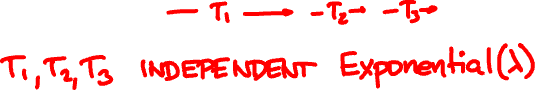 T₁ T₂ T₃
T₁, T₂, T₃ INDEPENDENT Exponential(λ)